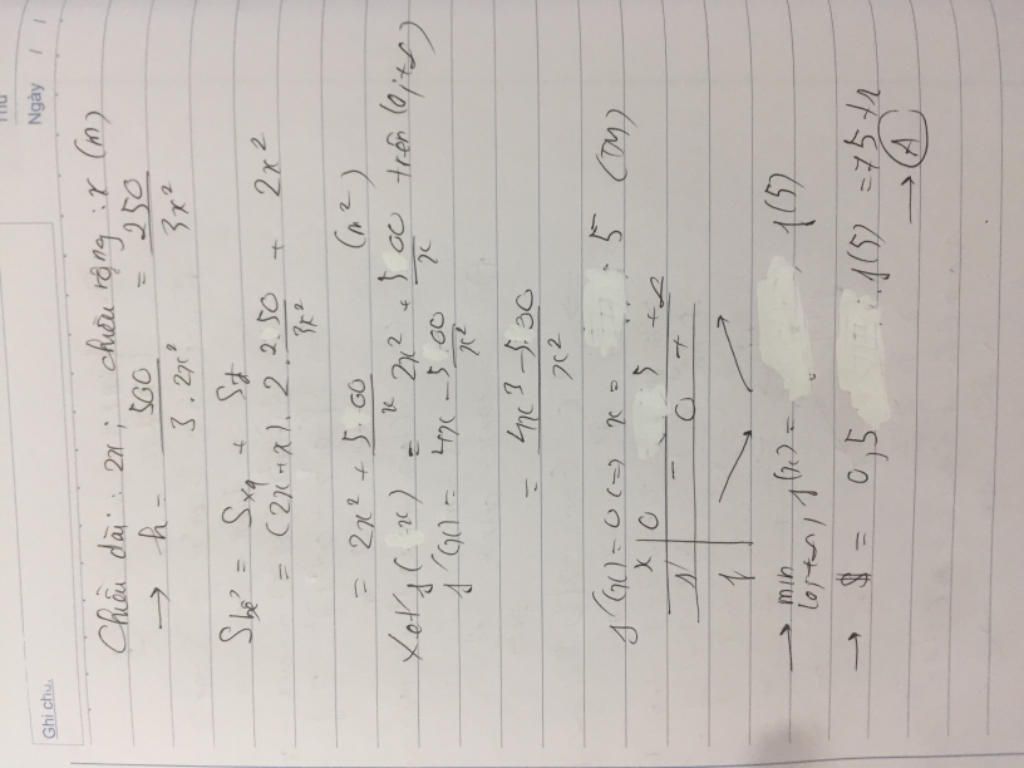 Ngày / /
Ghi chú.
Chiều dài: 2x; chiều rộng: x (m)
→ h = 500 / 3.2x² = 250 / 3x²
Sbể = Sxq + Sđ
= (2x+x).2.250/3x² + 2x²
= 2x² + 500/x (m²)
Xét f(x) = 2x² + 500/x trên (0;+∞)
f'(x) = 4x - 500/x²
= 4x³-500 / x²
f'(x)=0 <=> x = 5 (TM)
x 0 5 +∞
f' - 0 +
f
→ min (0;+∞) f(x) = f(5)
→ $ = 0,5 . f(5) = 75 tr
→ A